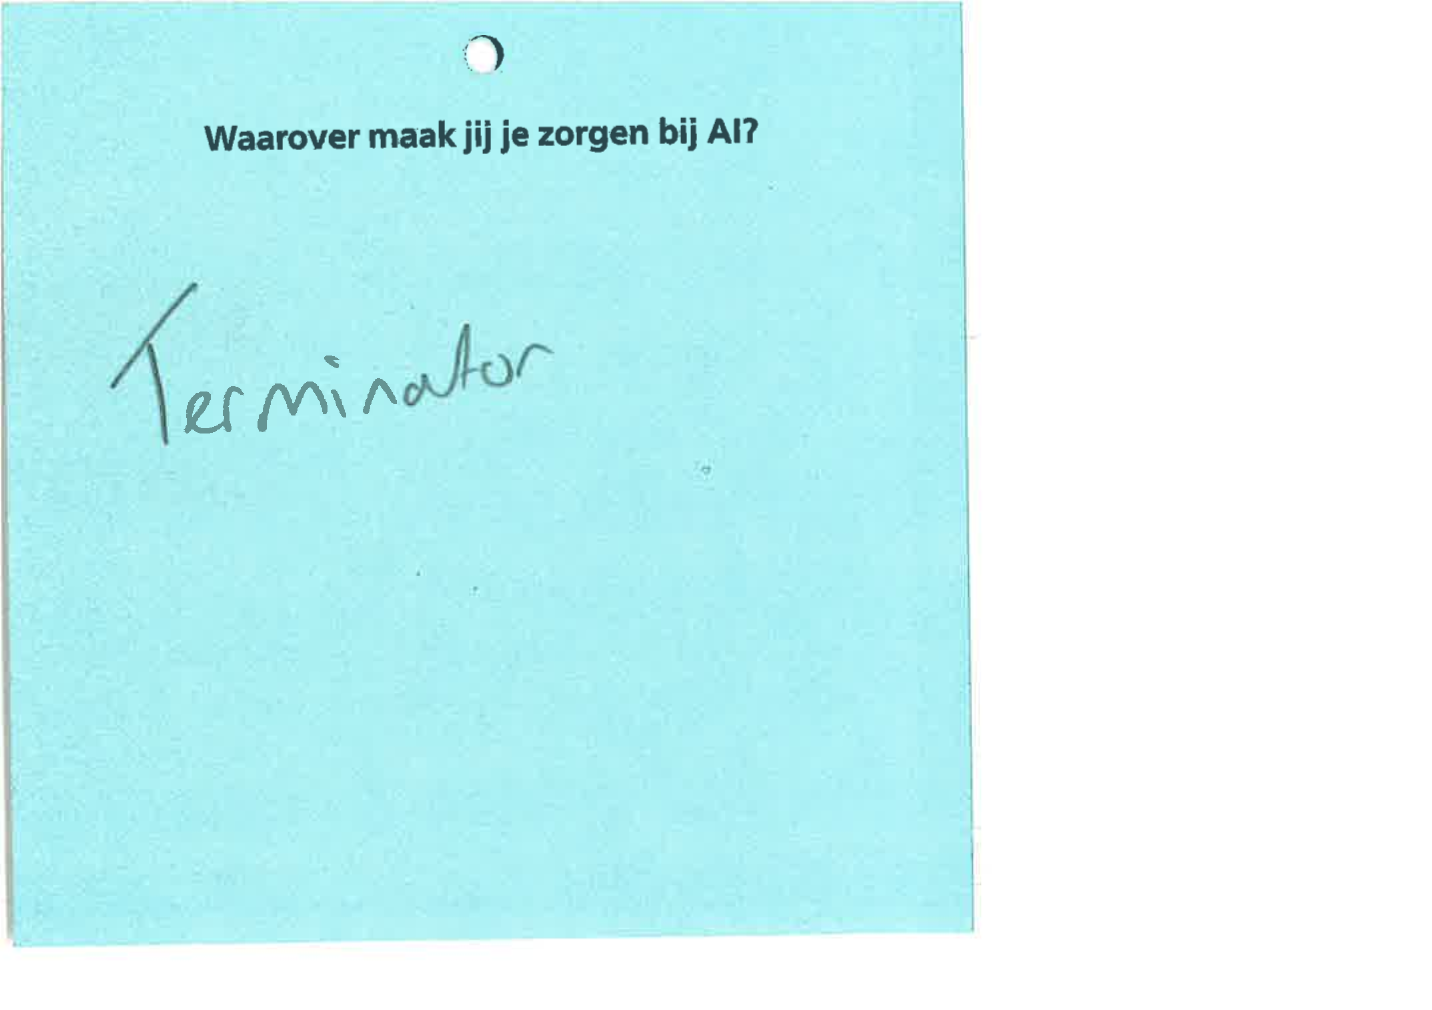 Waarover maak jij je zorgen bij AI?
Terminator